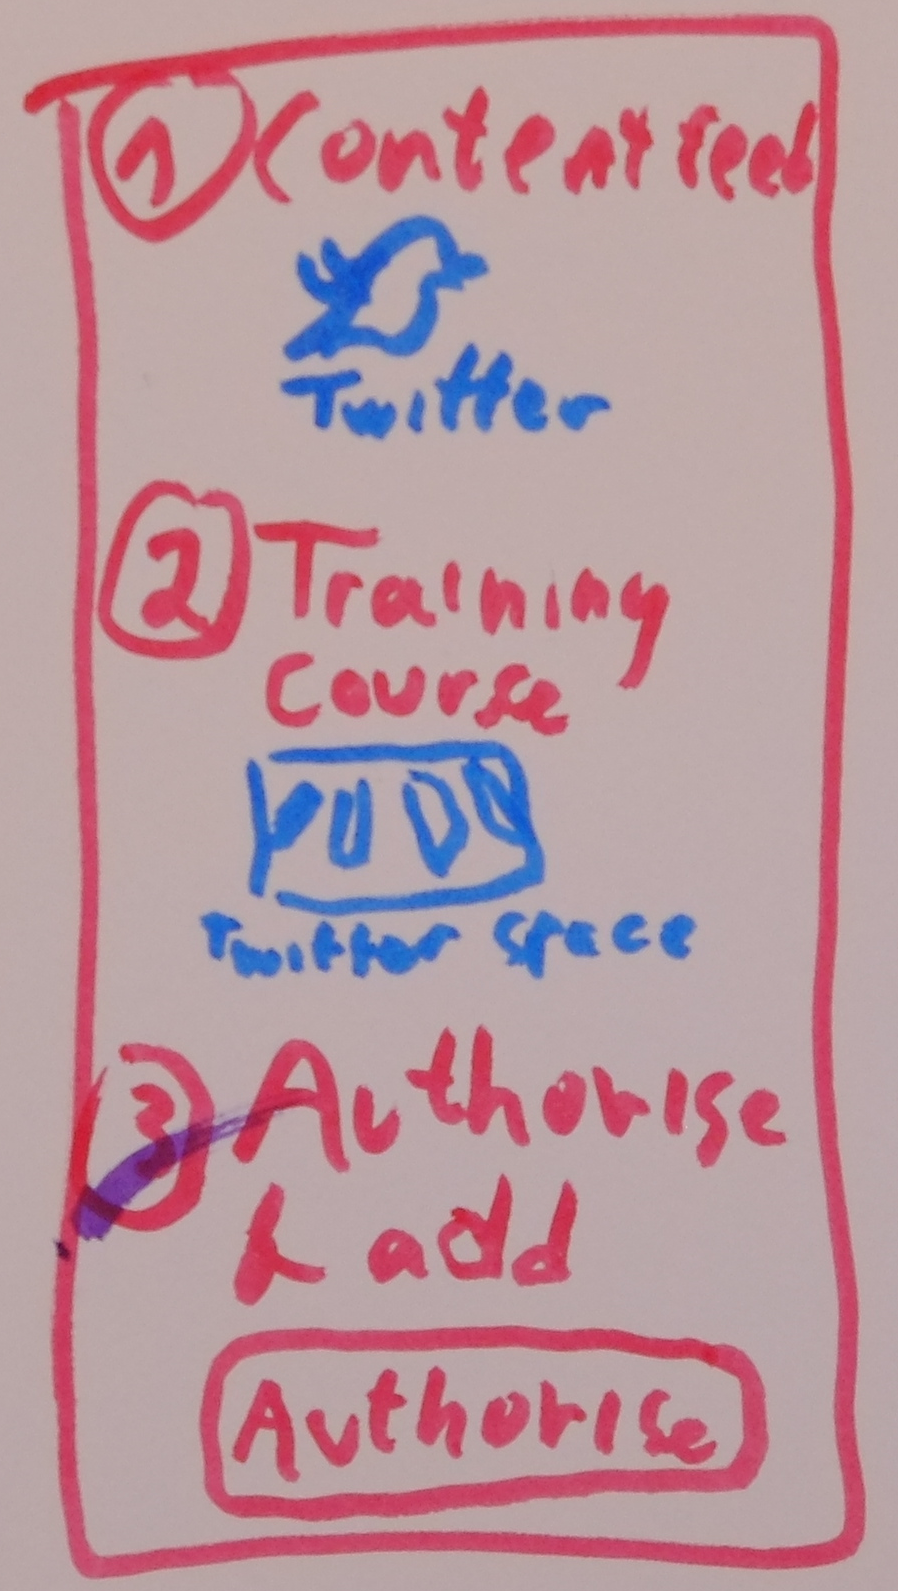 1 Content feed
Twitter
2 Training
Course
Twitter space
3 Authorise
& add
Authorise